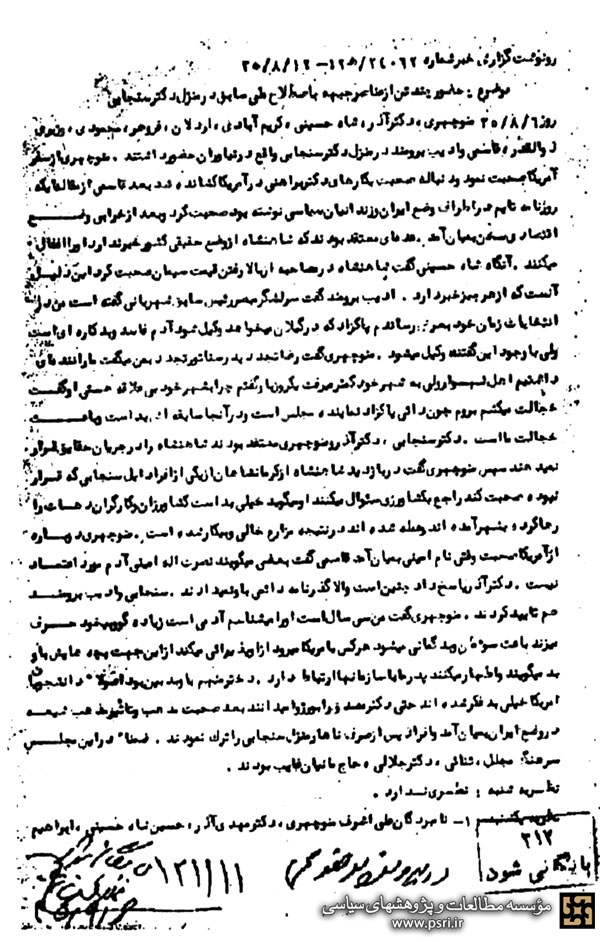 رونوشت گزارش خبر شماره ۱۲۵/۲۴۰۶۲ - ۳۵/۸/۱۲
موضوع : حضور چند تن از عناصر جبهه باصطلاح ملی سابق در منزل دکتر سنجابی
روز ۳۵/۸/۶ منوچهری ، دکتر آذر ، شاه حسینی ، کریم آبادی ، اردلان ، فروهر ، محمودی ،
ذوالقدر ، قاسمی وادیب برومند در منزل دکتر سنجابی واقع در نیاوران حضور داشتند . منوچهری از سفر
آمریکا صحبت نمود ودنباله صحبت بکارهای دکتر براهنی در آمریکا کشانده شد بعد قاسمی از مقاله ایکه
روزنامه تایم در اطراف وضع ایران وزندانیان سیاسی نوشته بود صحبت کرد وبعد از خرابی وضع
اقتصادی سخن بمیان آمد . عده ای معتقد بودند که شاهنشاه از وضع حقیقی کشور خبر ندارد اورا اغفال
میکنند . آنگاه شاه حسینی گفت شاهنشاه در مصاحبه از بالا رفتن قیمت سیمان صحبت کرد این دلیل
آنست که از هر چیز خبر دارد . ادیب برومند گفت سرلشگر مبصر رئیس سابق شهربانی گفته است من در
انتخابات زمان خود بعرض رساندم پاکزاد که در گیلان میخواهد وکیل شود آدم فاسد وبدکاره ای است
ولی با وجود این گفتند وکیل میشود . منوچهری گفت رضا تجدد پدر سناتور تجدد بمن میگفت ما راننده ای
داشتیم اهل لیسوار ولی به شهر خود کمتر میرفت یکروز باو گفتم چرا بشهر خود بی علاقه هستی او گفت
خجالت میکشم بروم چون دائی پاکزاد نماینده مجلس است ودر آنجا سابقه اش بد است وباعث
خجالت ما است . دکتر سنجابی ، دکتر آذر ومنوچهری معتقد بودند شاهنشاه را در جریان حقایق قرار
نمیدهند سپس منوچهری گفت در بازدید شاهنشاه از کرمانشاهان از یکی از افراد ایل سنجابی که قرار
نبوده صحبت کند راجع بکشاورزی سئوال میکنند او میگوید خیلی بد است کشاورزان وکارگران دهات را
رها کرده بشهر آمده اند وعمله شده اند در نتیجه مزارع خالی وبیکار شده است . منوچهری دوباره
از آمریکا صحبت ولی نام امینی بمیان آمد قاسمی گفت بعضی میگویند نصرت اله امینی آدم مورد اعتماد
نیست . دکتر آذر پاسخ داد چنین است والا گذرنامه دائمی باو نمیدادند . سنجابی وادیب برومند
هم تایید کردند . منوچهری گفت من سی سال است اورا میشناسم آدمی است زیاده گو وبیخود حرف
میزند باعث سوءظن وبدگمانی میشود هرکس بآمریکا میرود از او پذیرائی میکند از این جهت بچه هایش باو
بد میگویند واظهار میکنند پدر ما با سازمانها ارتباط دارد . دخترش هم باو بدبین بود اصولا دانشجویان
آمریکا خیلی بد فکر شده اند حتی دکتر مصدق را بورژوا میدانند بعد صحبت مذهب وتاثیر مذهب شیعه
در وضع ایران بمیان آمد وافراد پس از صرف ناهار منزل سنجابی را ترک نمودند . ضمنا در این مجلس
مجلل ، ثنائی ، دکتر جلالی ، حاج مانیان غایب بودند .
نظریه شنبه : نظری ندارد .
نظریه یکشنبه : ۱- نامبردگان علی اشرف منوچهری ، دکتر مهدی آذر ، حسین شاه حسینی ، ابراهیم
۳۱۲
بایگانی شود
در پرونده
۱۲۱۱۱۱
مؤسسه مطالعات و پژوهشهای سیاسی
www.psri.ir